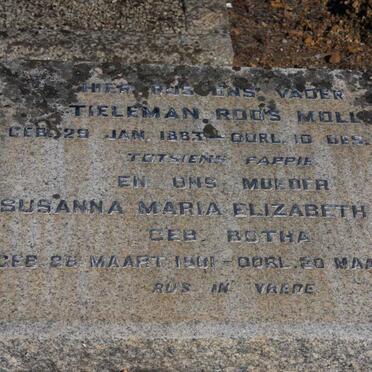 HIER RUS ONS VADER
TIELEMAN ROOS MOLL
GEB. 29 JAN. 1883 - OORL. 10 DES.
TOTSIENS PAPPIE
EN ONS MOEDER
SUSANNA MARIA ELIZABETH
GEB BOTHA
GEB. 28 MAART 1901 - OORL. 20 MAA
RUS IN VREDE